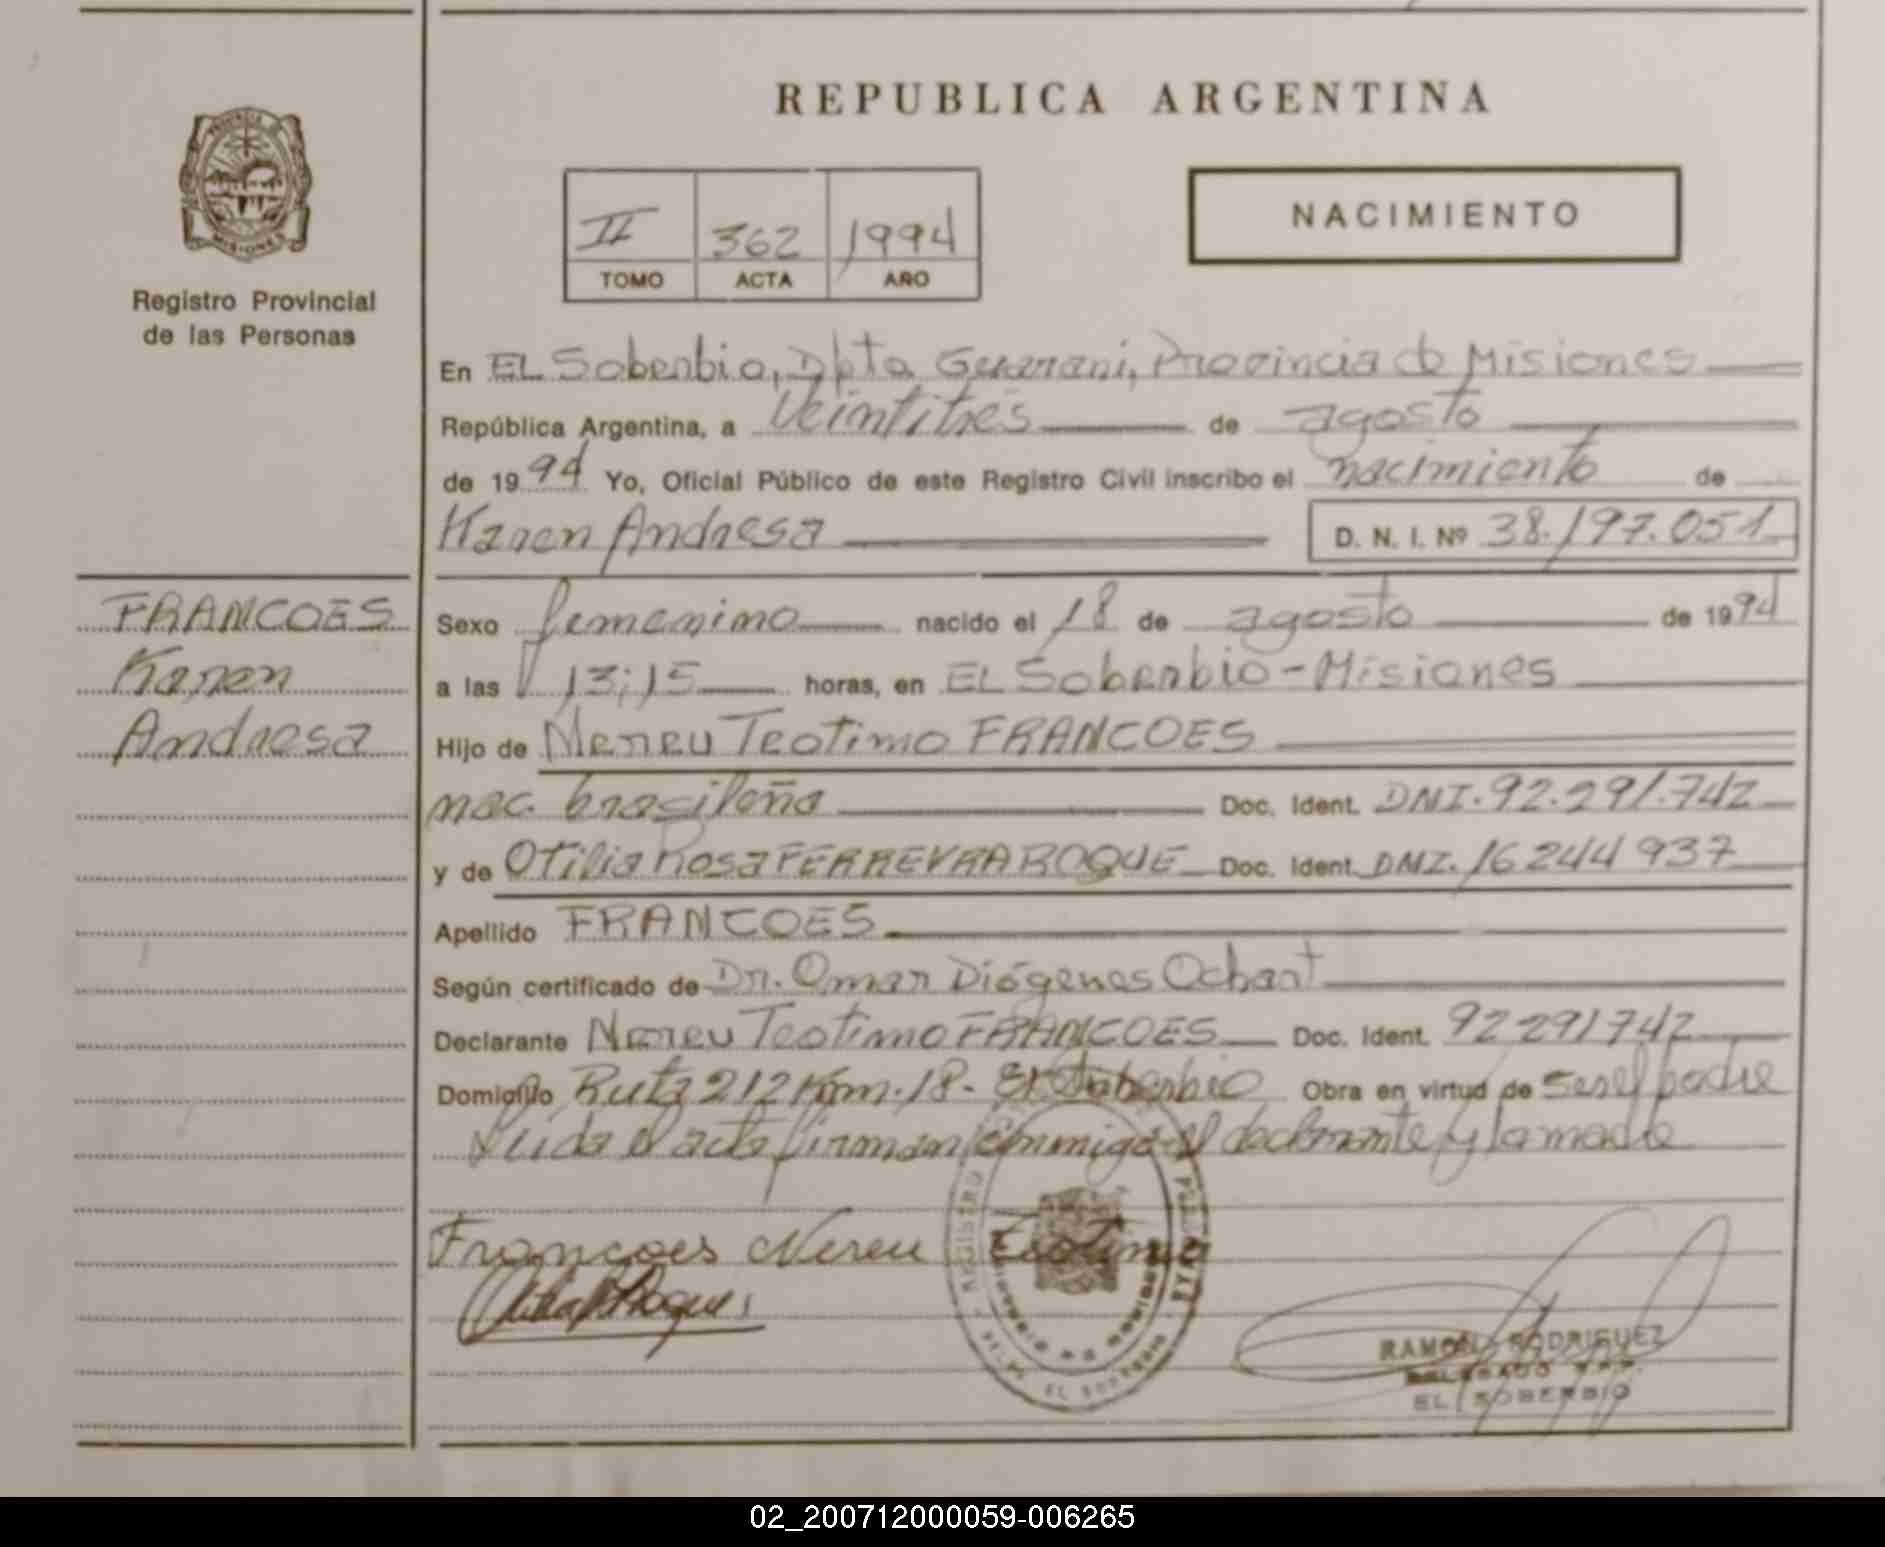 REPUBLICA ARGENTINA
PROVINCIA DE
MISIONES
Registro Provincial
de las Personas
II 362 1994
TOMO ACTA AÑO
NACIMIENTO
En EL Soberbio, Dpto Guarani, Provincia de Misiones
República Argentina, a Veintitrés de agosto
de 1994 Yo, Oficial Público de este Registro Civil inscribo el nacimiento de
Karen Andresa D. N. I. Nº 38.197.051
FRANCOES
Karen
Andresa
Sexo femenino nacido el 18 de agosto de 1994
a las 13;15 horas, en EL Soberbio - Misiones
Hijo de Nereu Teotimo FRANCOES
nac. brasileña Doc. Ident. DNI. 92.291.742
y de Otilia Rosa FERREYRA ROQUE Doc. Ident. DNI. 16244937
Apellido FRANCOES
Según certificado de Dr. Omar Diógenes Ochart
Declarante Nereu Teotimo FRANCOES Doc. Ident. 92291742
Domicilio Ruta 212 Km. 18 - El Soberbio Obra en virtud de ser el padre
Leida el acta firman conmigo el declarante y la madre
Françoes Nereu Teotimo
RAMON RODRIGUEZ
DELEGADO
EL SOBERBIO
REGISTRO
EL SOBERBIO
02_200712000059-006265